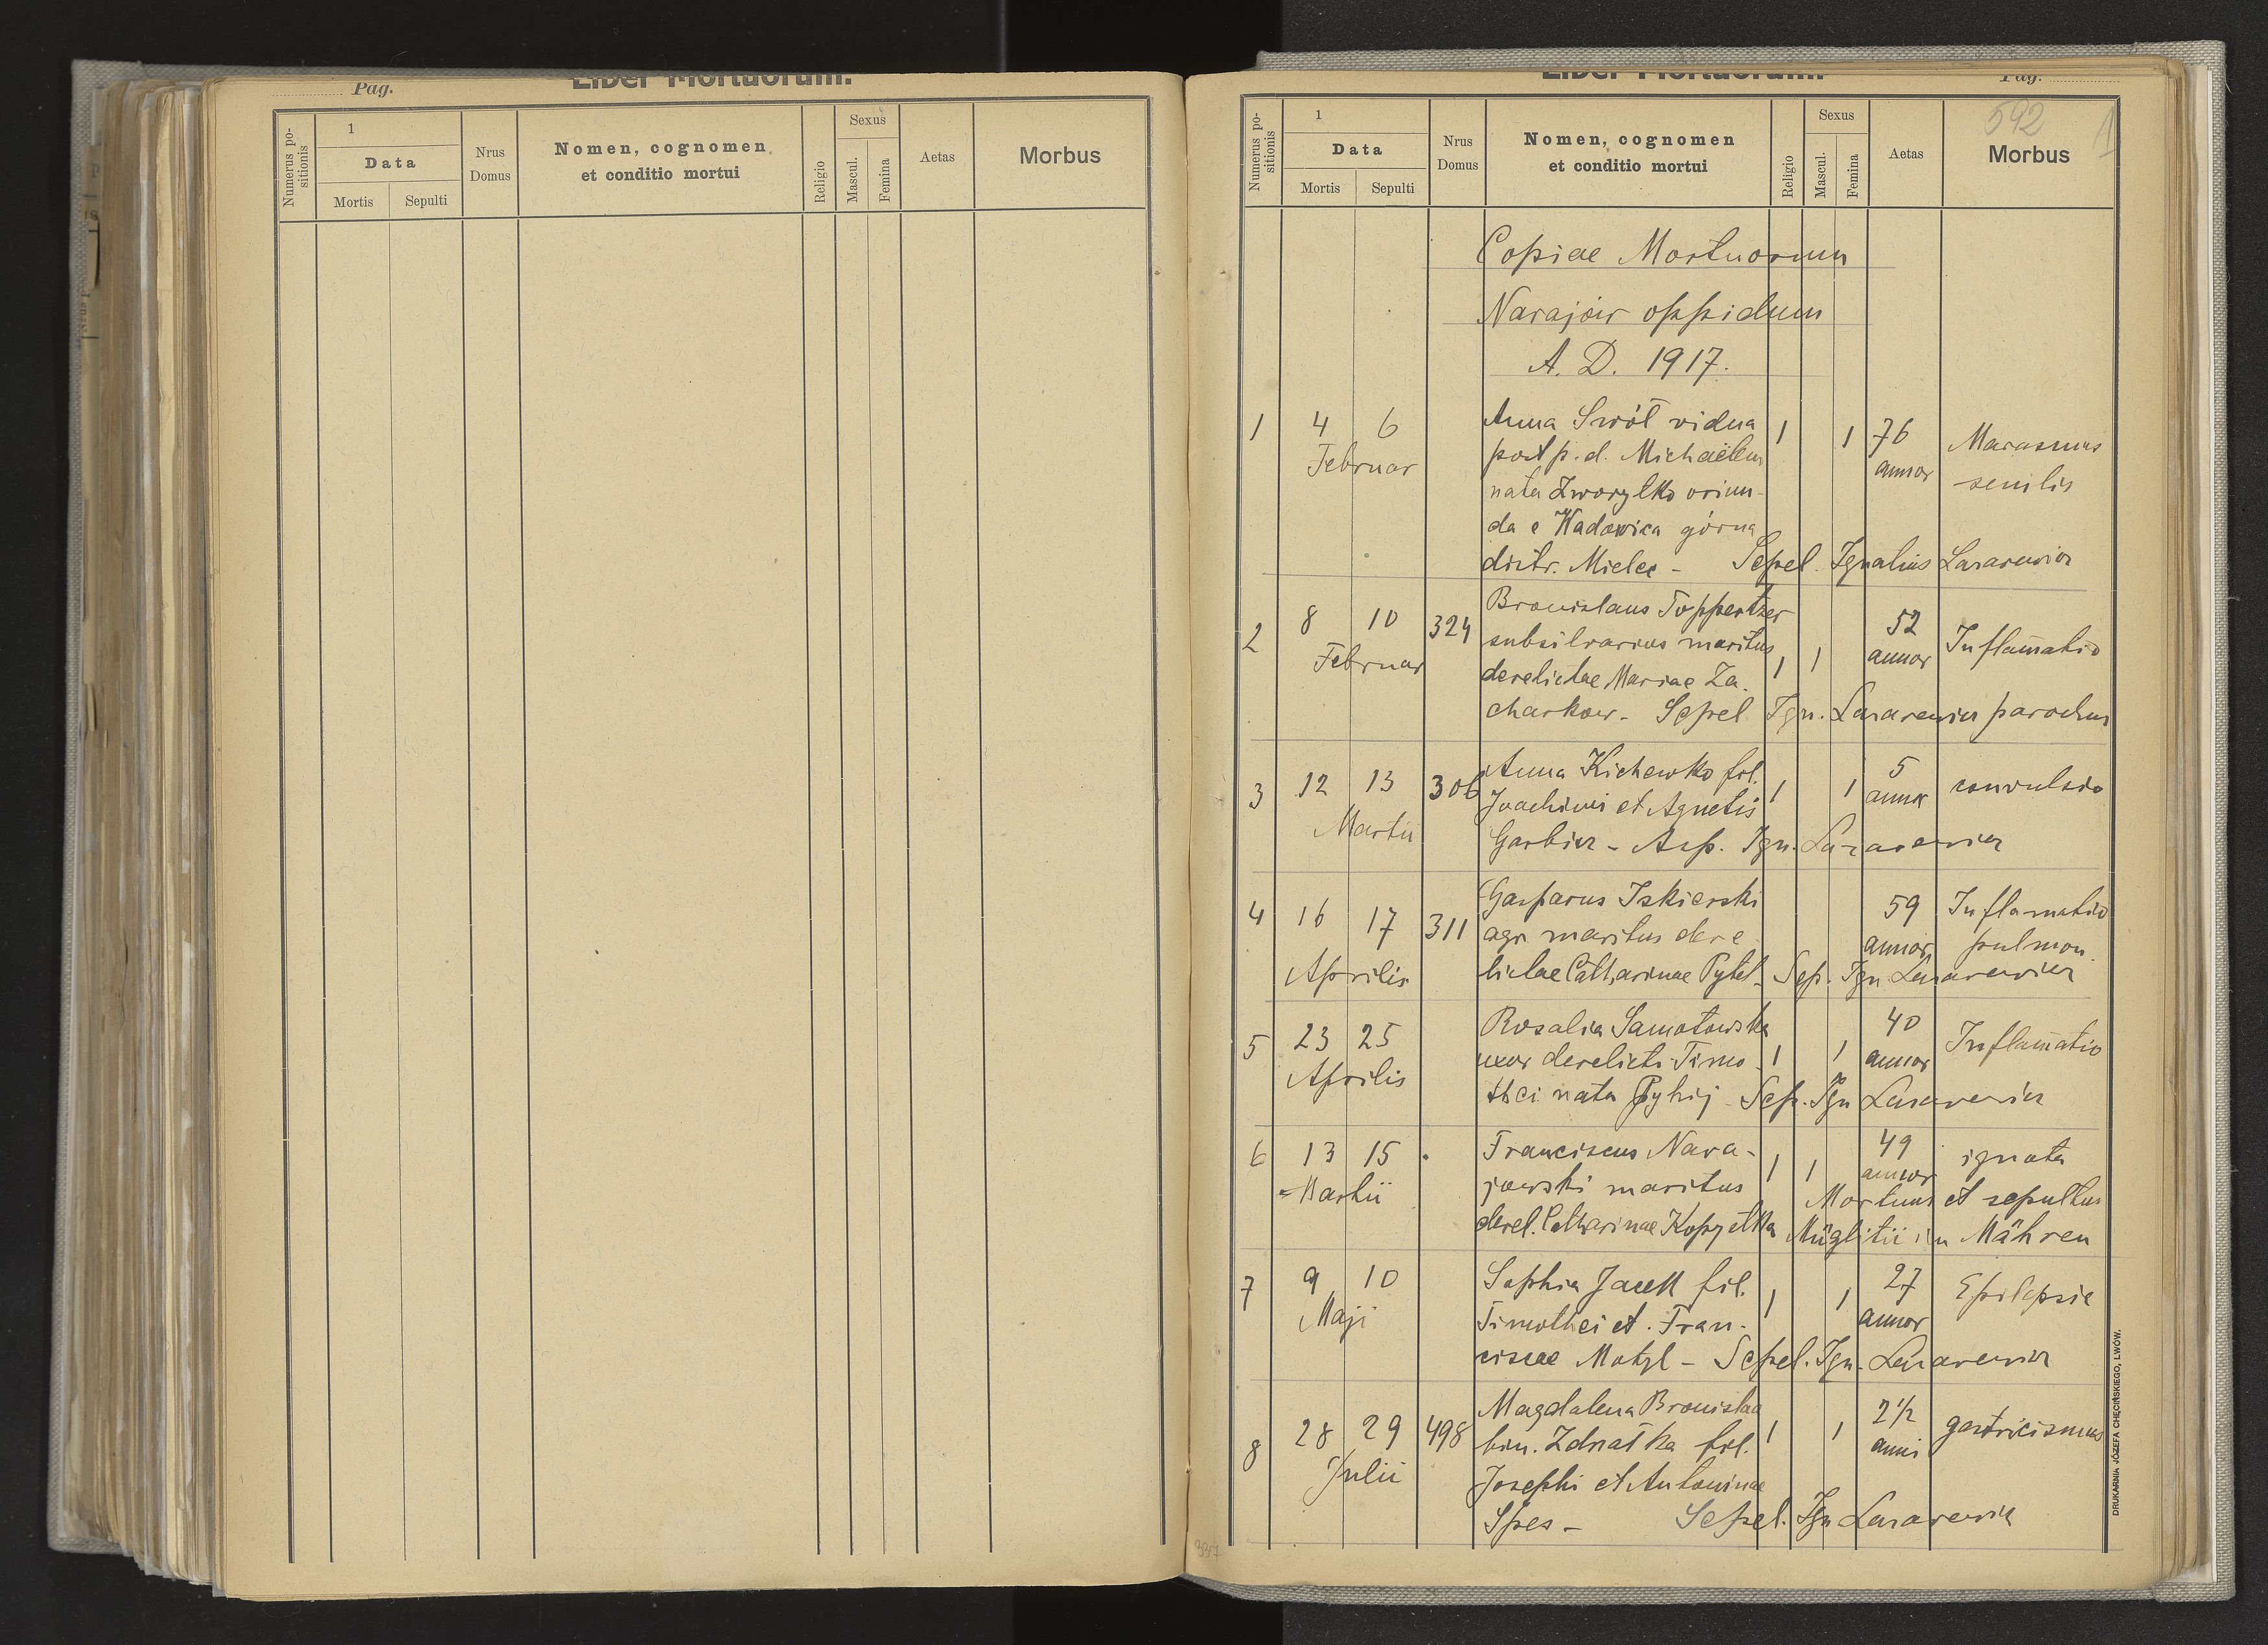 Pag.
Liber Mortuorum.
Numerus po-
sitionis
1
Data
Mortis
Sepulti
Nrus
Domus
Nomen, cognomen
et conditio mortui
Religio
Sexus
Mascul.
Femina
Aetas
Morbus
Liber Mortuorum.
Pag.
592
Numerus po-
sitionis
1
Data
Mortis
Sepulti
Nrus
Domus
Nomen, cognomen
et conditio mortui
Religio
Sexus
Mascul.
Femina
Aetas
Morbus
Copiae Mortuorum
Narajów oppidum
A. D. 1917.
1 4 6 Anna Swół vidua 1 1 76 Marasmus
Februar post p. d. Michaëlem annor senilis
nata Zworyłko oriun-
da e Wadowica górna
distr. Mielec - Sepel. Ignatius Lazarewicz
2 8 10 324 Bronislaus Toppertzer 52 Inflam̄atio
Februar subsilvarius maritus 1 1 annor
derelictae Mariae Za-
charkow - Sepel. Ign. Lazarewicz parochus
3 12 13 306 Anna Kichewko fil. 1 1 5 convulsio
Martii Joachimi et Agnetis annor
Garbicz - Asp. Ign. Lazarewicz
4 16 17 311 Gasparus Iskierski 59 Inflamatio
agr maritus dere annor pulmon.
Aprilis lictae Catharinae Pytel - Sep. Ign Lazarewicz
5 23 25 Rosalia Samotowska 40 Inflam̄atio
Aprilis uxor derelicti Timo- 1 1 annor
thei nata Pyhij - Sep. Ign Lazarewicz
6 13 15 Franciscus Nara- 1 1 49 ignota
Martii jowski maritus annor Mortuus et sepultus
derel. Catharinae Kopyetka Müglitii in Mähren
7 9 10 Sophia Jacek fil. 1 1 27 Epilepsie
Maji Timothei et Fran- annor
ciscae Motyl - Sepel. Ign. Lazarewicz
8 28 29 498 Magdalena Bronislaa 1 1 2 1/2 gastricismus
Julii bin. Zdnatka fil. anni
Josephi et Antoninae
Spes - Sepel. Ign Lazarewicz
DRUKARNIA JÓZEFA CHĘCIŃSKIEGO, LWÓW.
337